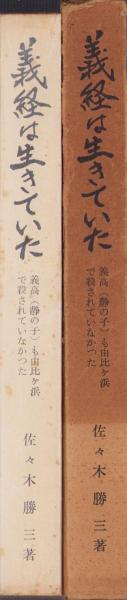 義経は生きていた
義高（静の子）も由比ヶ浜
で殺されていなかった
佐々木勝三著
義経は生きていた
義高（静の子）も由比ヶ浜
で殺されていなかった
佐々木勝三著